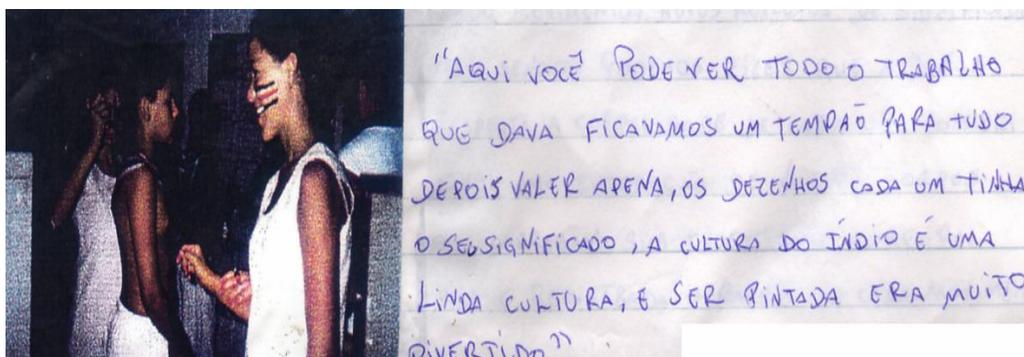 "AQUI VOCÊ PODE VER TODO O TRABALHO
QUE DAVA FICAVAMOS UM TEMPÃO PARA TUDO
DEPOIS VALER APENA, OS DEZENHOS CADA UM TINHA
O SEU SIGNIFICADO, A CULTURA DO ÍNDIO É UMA
LINDA CULTURA, E SER PINTADA ERA MUITO
DIVERTIDO"